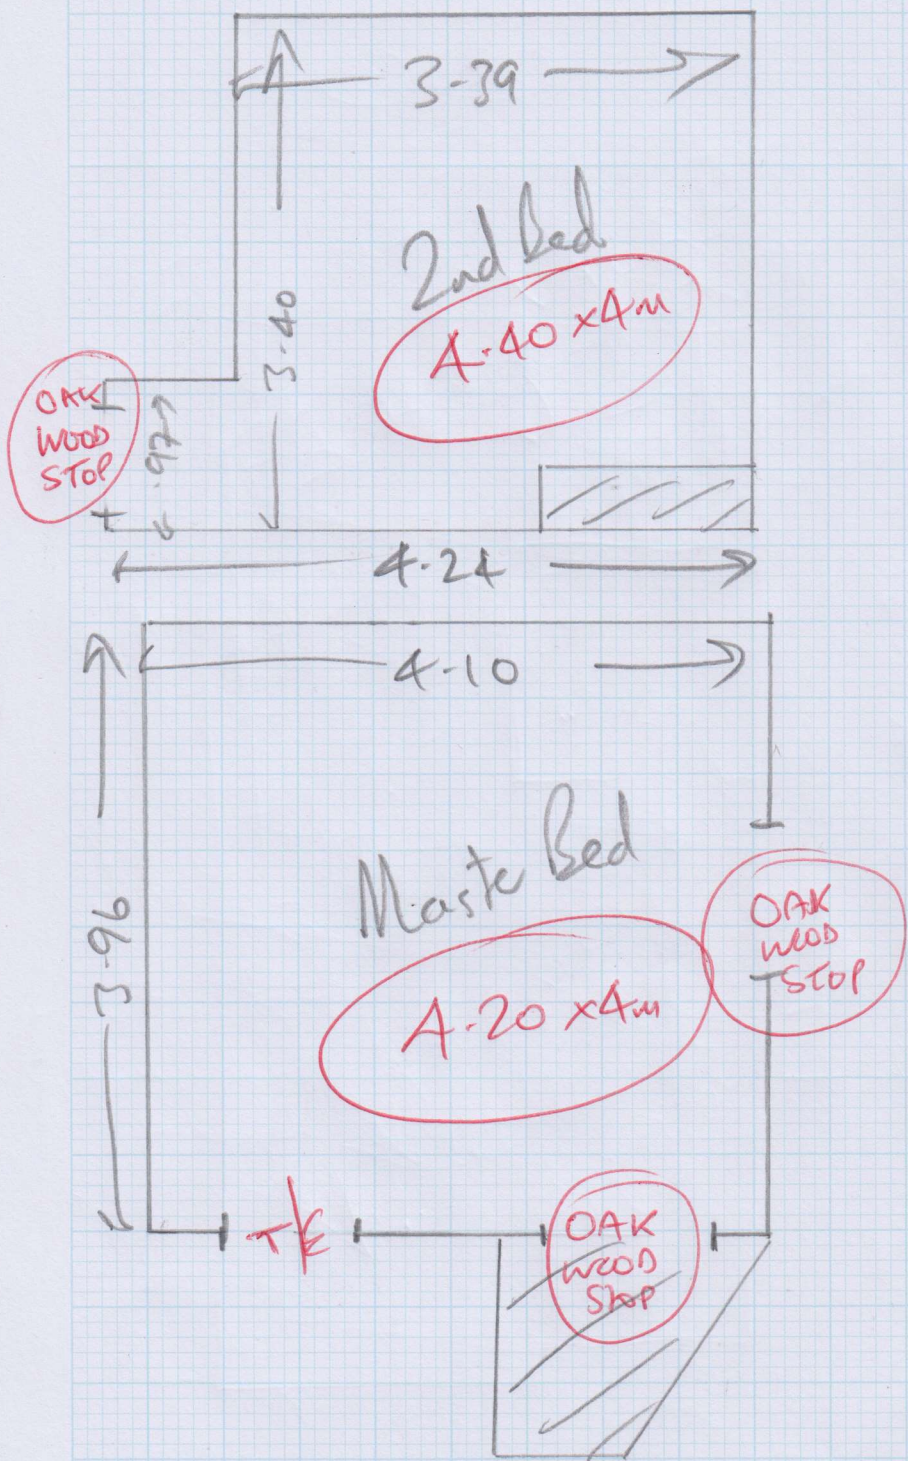 3-39
2nd Bed
4.40 x4m
3-40
OAK
WOOD
STOP
.97
4.24
4-10
3-96
Maste Bed
4.20 x4m
OAK
WOOD
STOP
T/E
OAK
WOOD
StoP